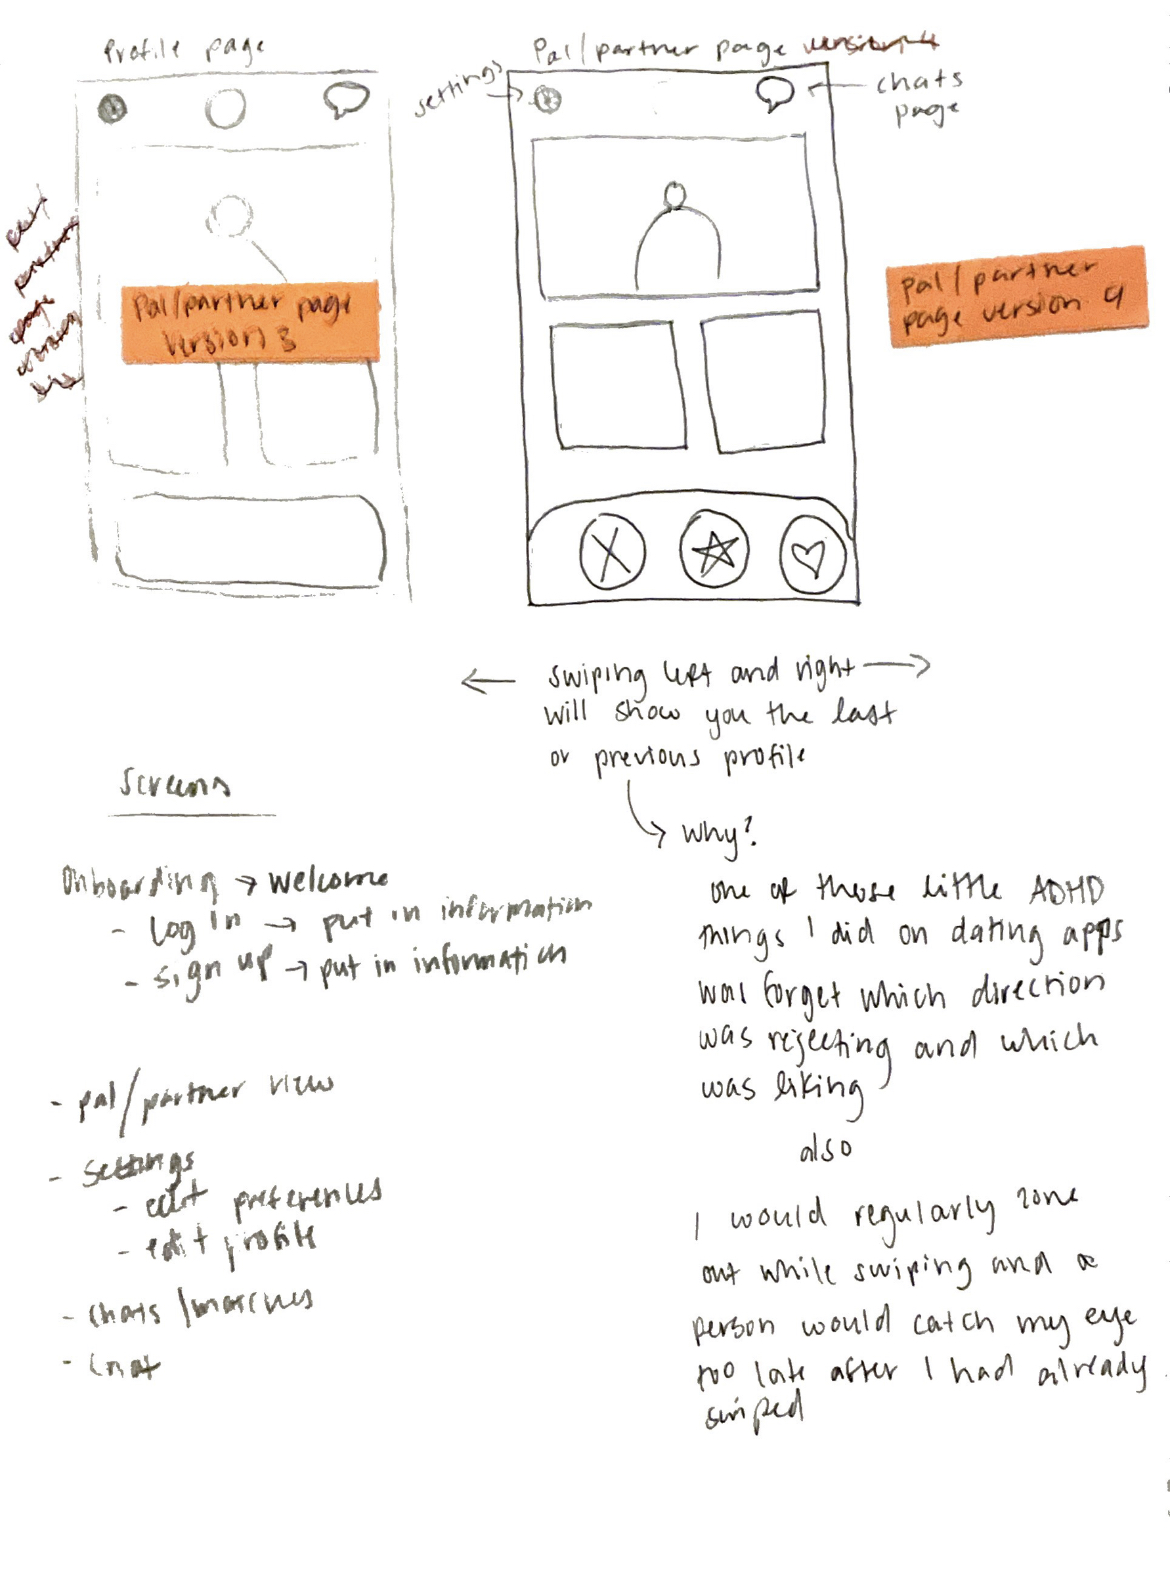 Profile page
Pal/partner page version 4
settings
chats
page
Pal/partner page
version 3
pal/partner
page version 4
swiping left and right
will show you the last
or previous profile
why?
one of those little ADHD
things I did on dating apps
was forget which direction
was rejecting and which
was liking
also
I would regularly zone
out while swiping and a
person would catch my eye
too late after I had already
swiped
Screens
Onboarding → welcome
- log in → put in information
- sign up → put in information
- pal/partner view
- settings
- edit preferences
- edit profile
- chats/matches
- chat